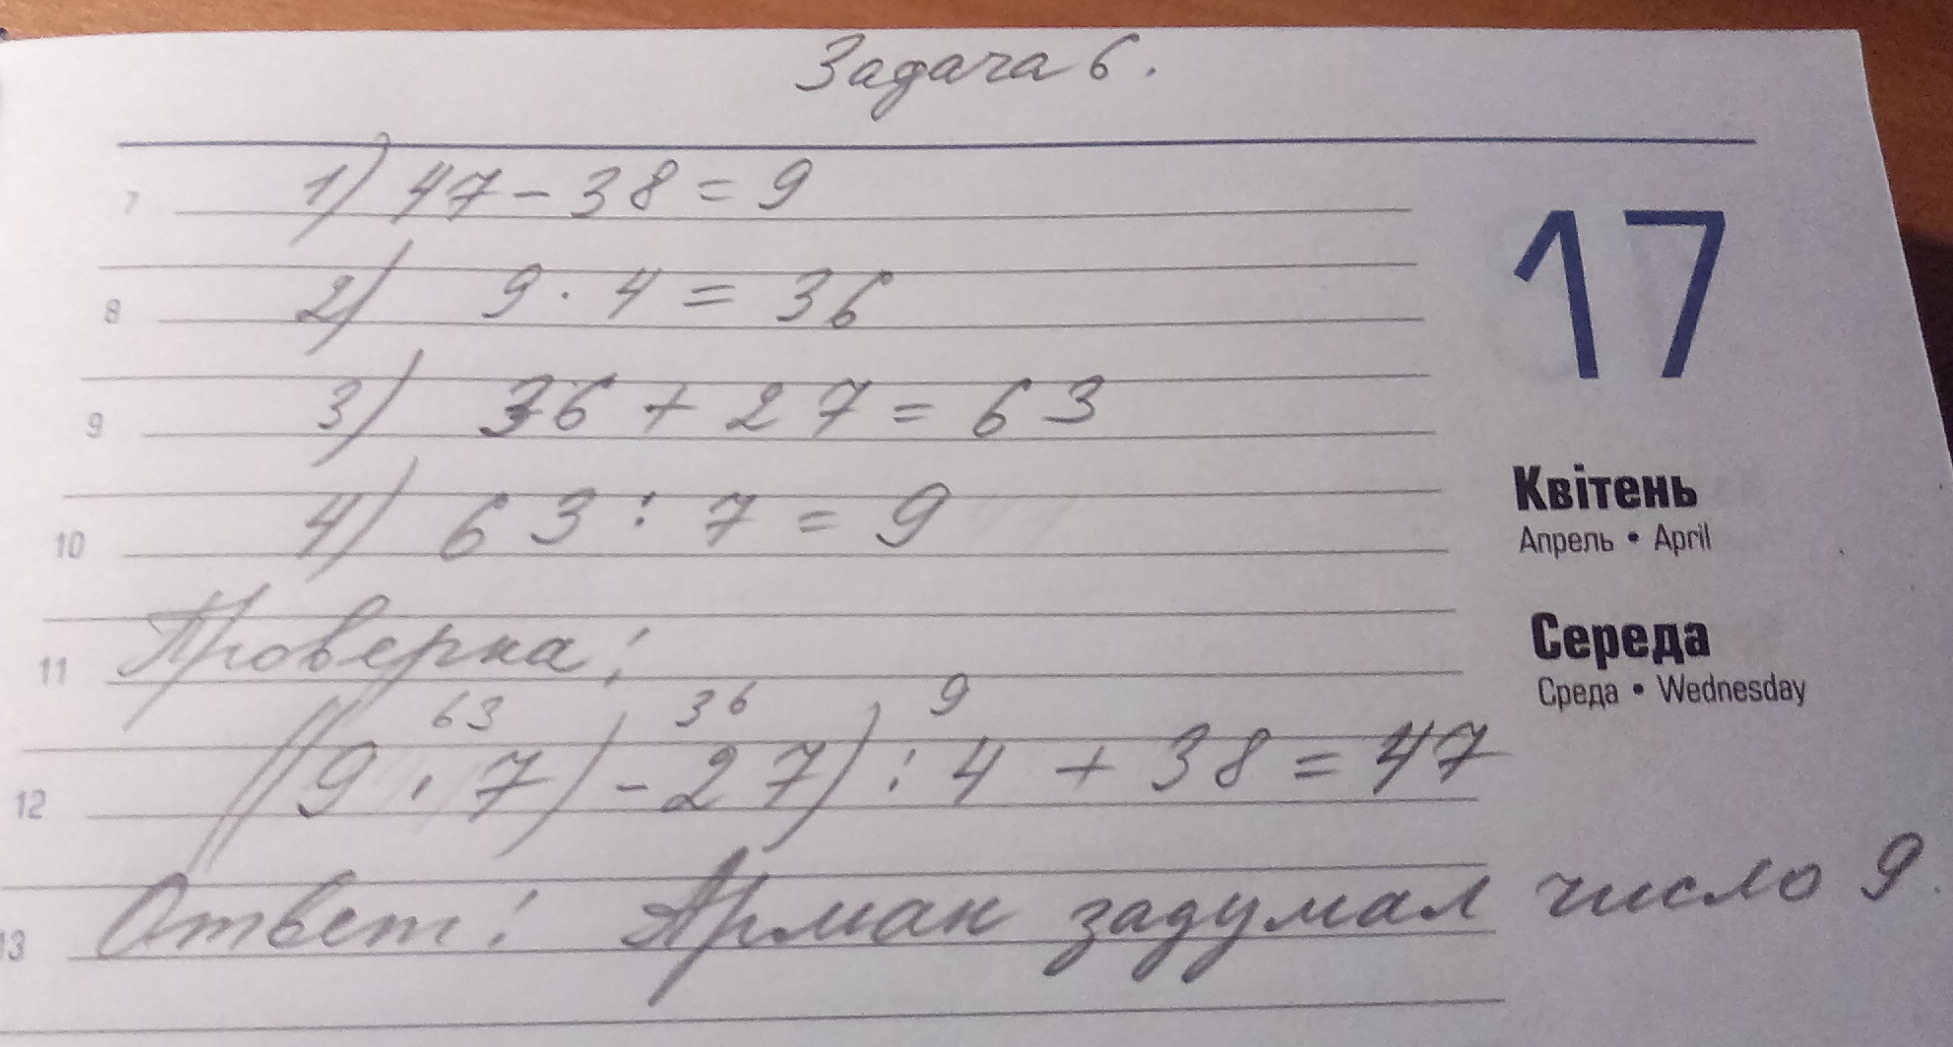 Задача 6.
7 1) 47 - 38 = 9
8 2) 9 · 4 = 36
9 3) 36 + 27 = 63
10 4) 63 : 7 = 9
11 Проверка:
63 36 9
12 ((9 · 7) - 27) : 4 + 38 = 47
13 Ответ: Арман задумал число 9.
17
Квітень
Апрель • April
Середа
Среда • Wednesday